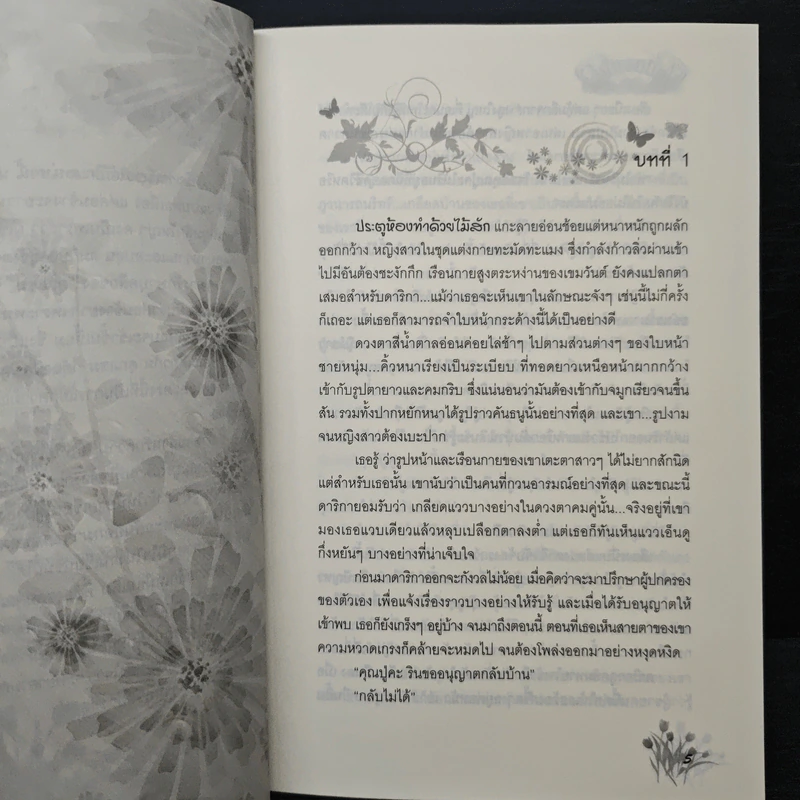 บทที่ 1
ประตูห้องทำด้วยไม้สัก แกะลายอ่อนช้อยแต่หนาหนักถูกผลัก
ออกกว้าง หญิงสาวในชุดแต่งกายทะมัดทะแมง ซึ่งกำลังก้าวลิ่วผ่านเข้า
ไปมีอันต้องชะงักกึก เรือนกายสูงตระหง่านของเขมวันต์ ยังคงแปลกตา
เสมอสำหรับดาริกา...แม้ว่าเธอจะเห็นเขาในลักษณะจังๆ เช่นนี้ไม่กี่ครั้ง
ก็เถอะ แต่เธอก็สามารถจำใบหน้ากระด้างนี้ได้เป็นอย่างดี
ดวงตาสีน้ำตาลอ่อนค่อยไล่ช้าๆ ไปตามส่วนต่างๆ ของใบหน้า
ชายหนุ่ม...คิ้วหนาเรียงเป็นระเบียบ ที่ทอดยาวเหนือหน้าผากกว้าง
เข้ากับรูปตายาวและคมกริบ ซึ่งแน่นอนว่ามันต้องเข้ากับจมูกเรียวจนขึ้น
สัน รวมทั้งปากหยักหนาได้รูปราวคันธนูนั้นอย่างที่สุด และเขา...รูปงาม
จนหญิงสาวต้องเบะปาก
เธอรู้ ว่ารูปหน้าและเรือนกายของเขาเตะตาสาวๆ ได้ไม่ยากสักนิด
แต่สำหรับเธอนั้น เขานับว่าเป็นคนที่กวนอารมณ์อย่างที่สุด และขณะนี้
ดาริกายอมรับว่า เกลียดแววบางอย่างในดวงตาคมคู่นั้น...จริงอยู่ที่เขา
มองเธอแวบเดียวแล้วหลุบเปลือกตาลงต่ำ แต่เธอก็ทันเห็นแววเอ็นดู
กึ่งหยันๆ บางอย่างที่น่าเจ็บใจ
ก่อนมาดาริกาออกจะกังวลไม่น้อย เมื่อคิดว่าจะมาปรึกษาผู้ปกครอง
ของตัวเอง เพื่อแจ้งเรื่องราวบางอย่างให้รับรู้ และเมื่อได้รับอนุญาตให้
เข้าพบ เธอก็ยังเกร็งๆ อยู่บ้าง จนมาถึงตอนนี้ ตอนที่เธอเห็นสายตาของเขา
ความหวาดเกรงก็คล้ายจะหมดไป จนต้องโพล่งออกมาอย่างหงุดหงิด
"คุณปู่คะ รินขออนุญาตกลับบ้าน"
"กลับไม่ได้"
5